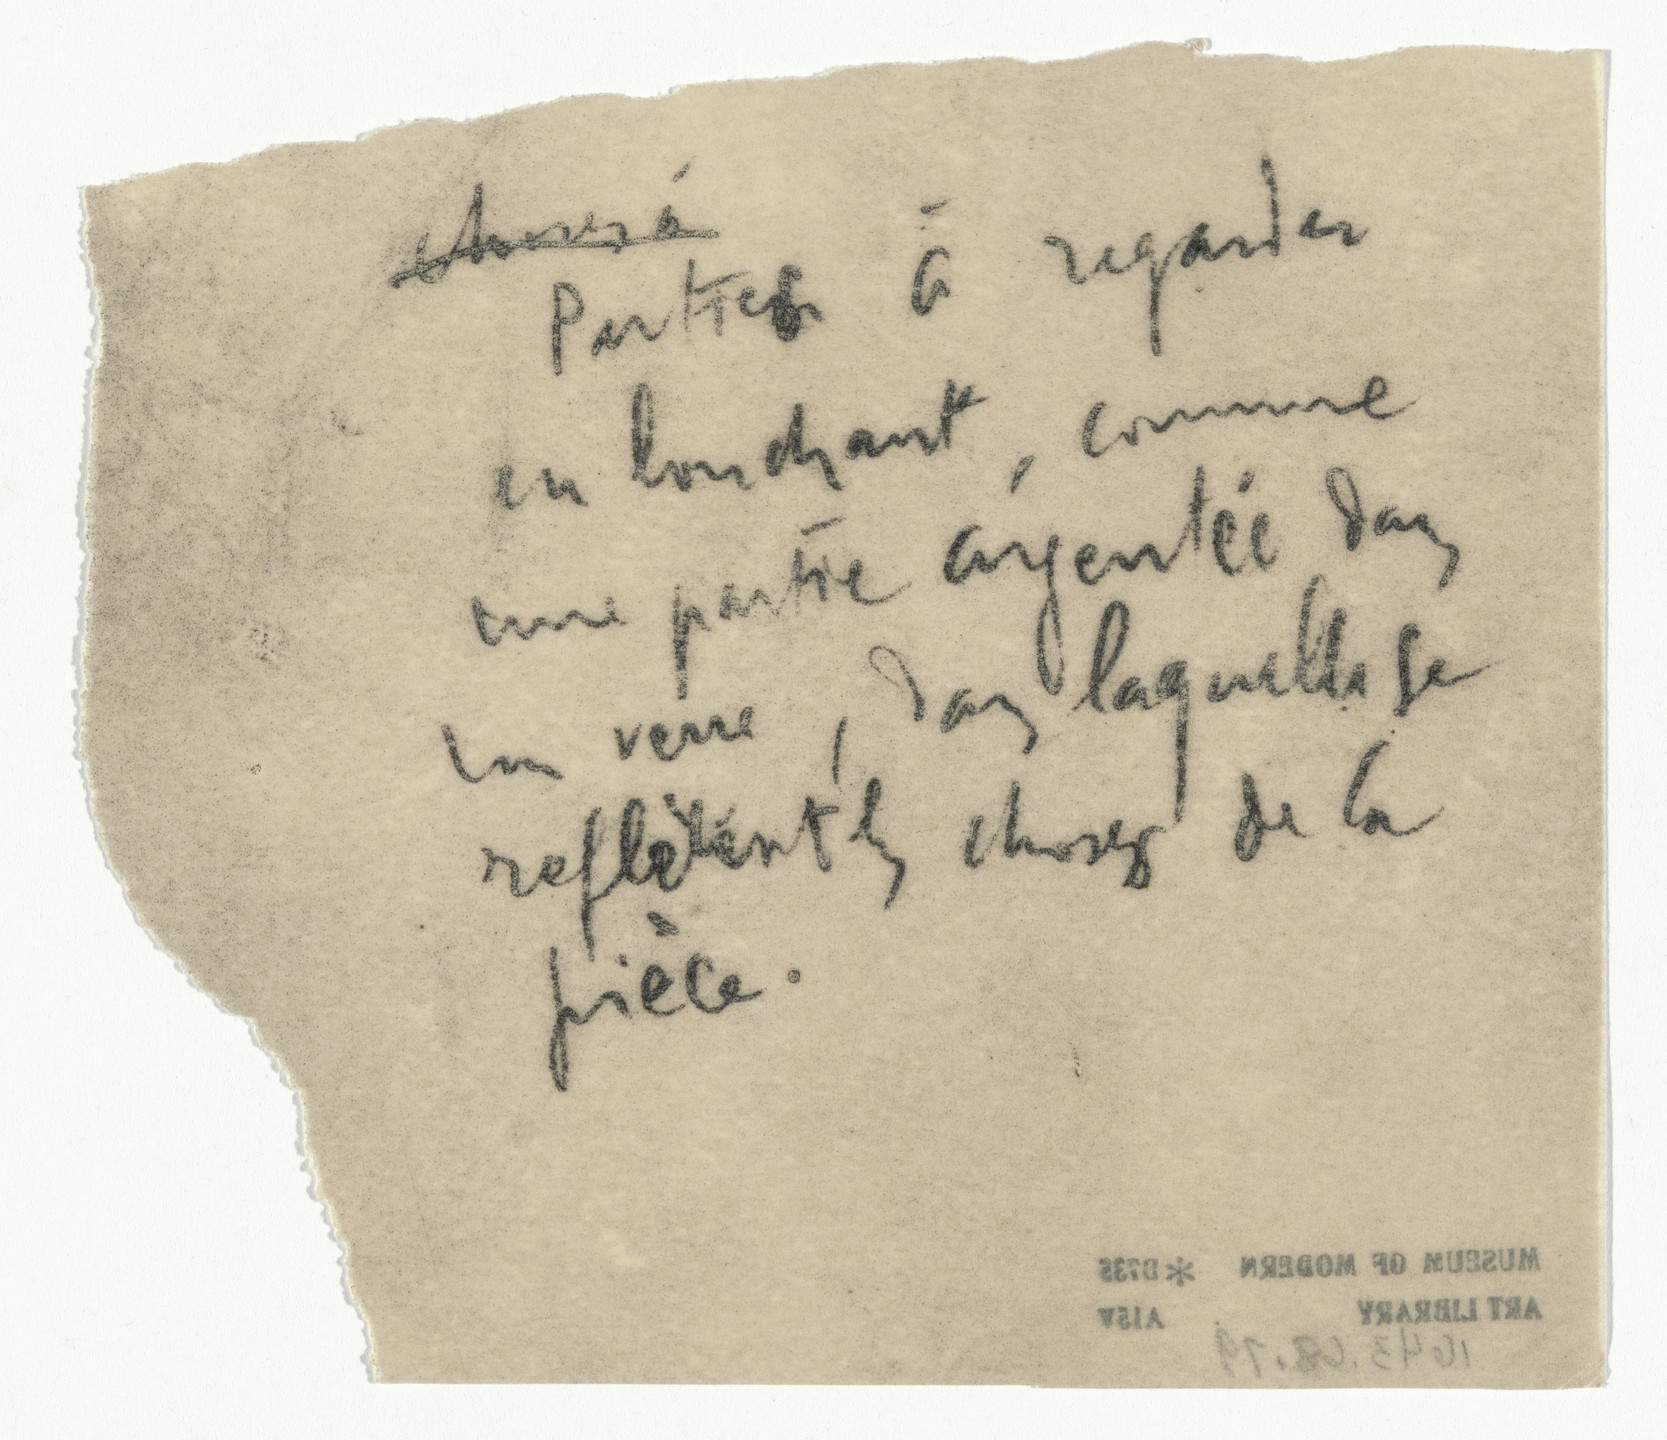 choses à
Parties à regarder
en louchant, comme
une partie argentée dans
un verre, dans laquelle se
reflètent les choses de la
pièce.
MUSEUM OF MODERN * D735
ART LIBRARY A15V
1643.68.79